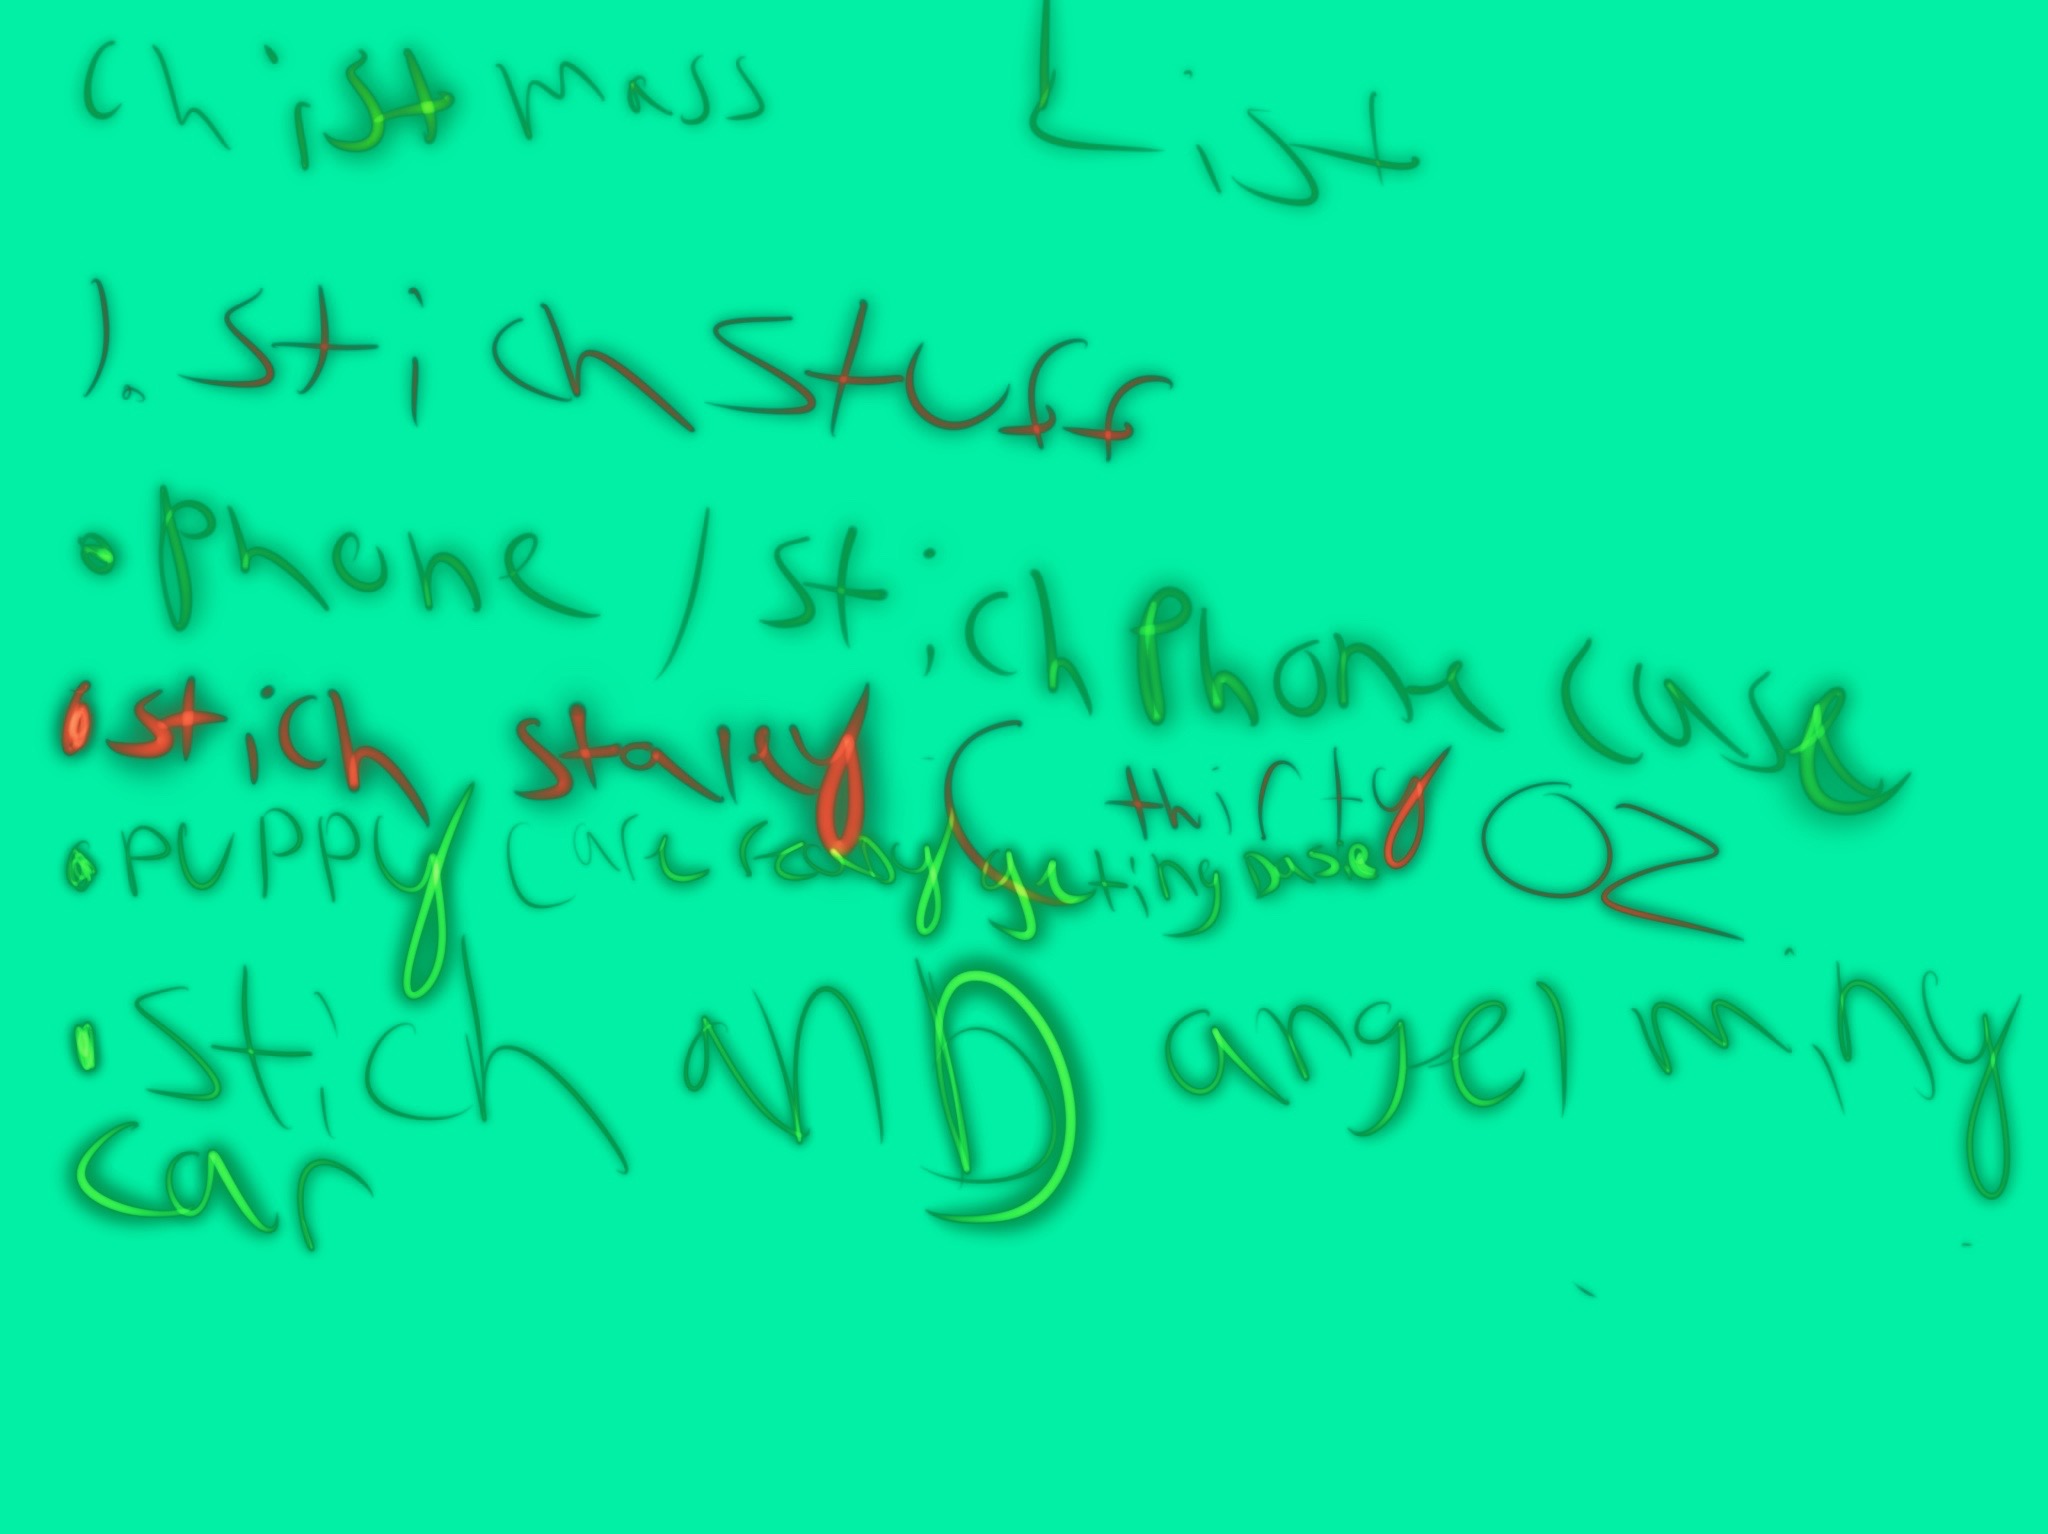 Chistmass List
1. Stich Stuff
• phone / stich phone case
• stich stanley ( thirty OZ
• puppy care ready geting Dusie
• Stich anD angel miny
car